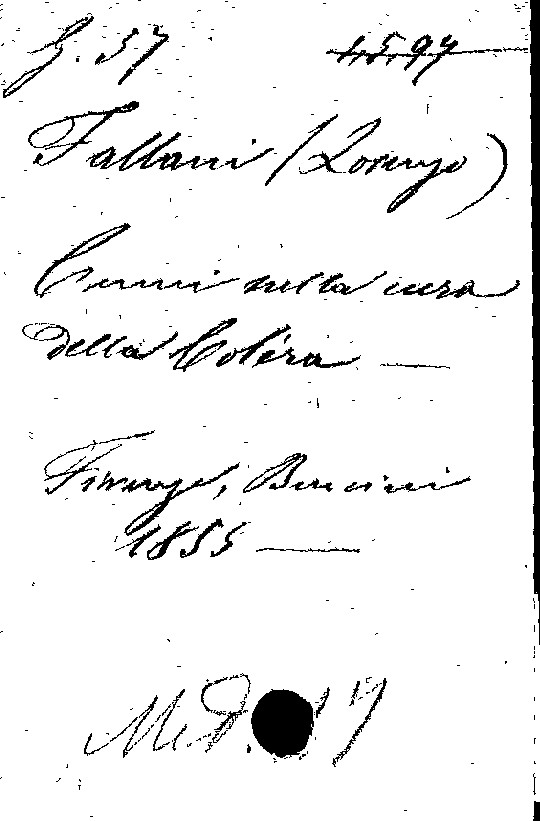 G. 57 4597
Fallani (Lorenzo)
Cenni sulla cura
della Coléra —
Firenze, Bencini
1855 —
Med. 17